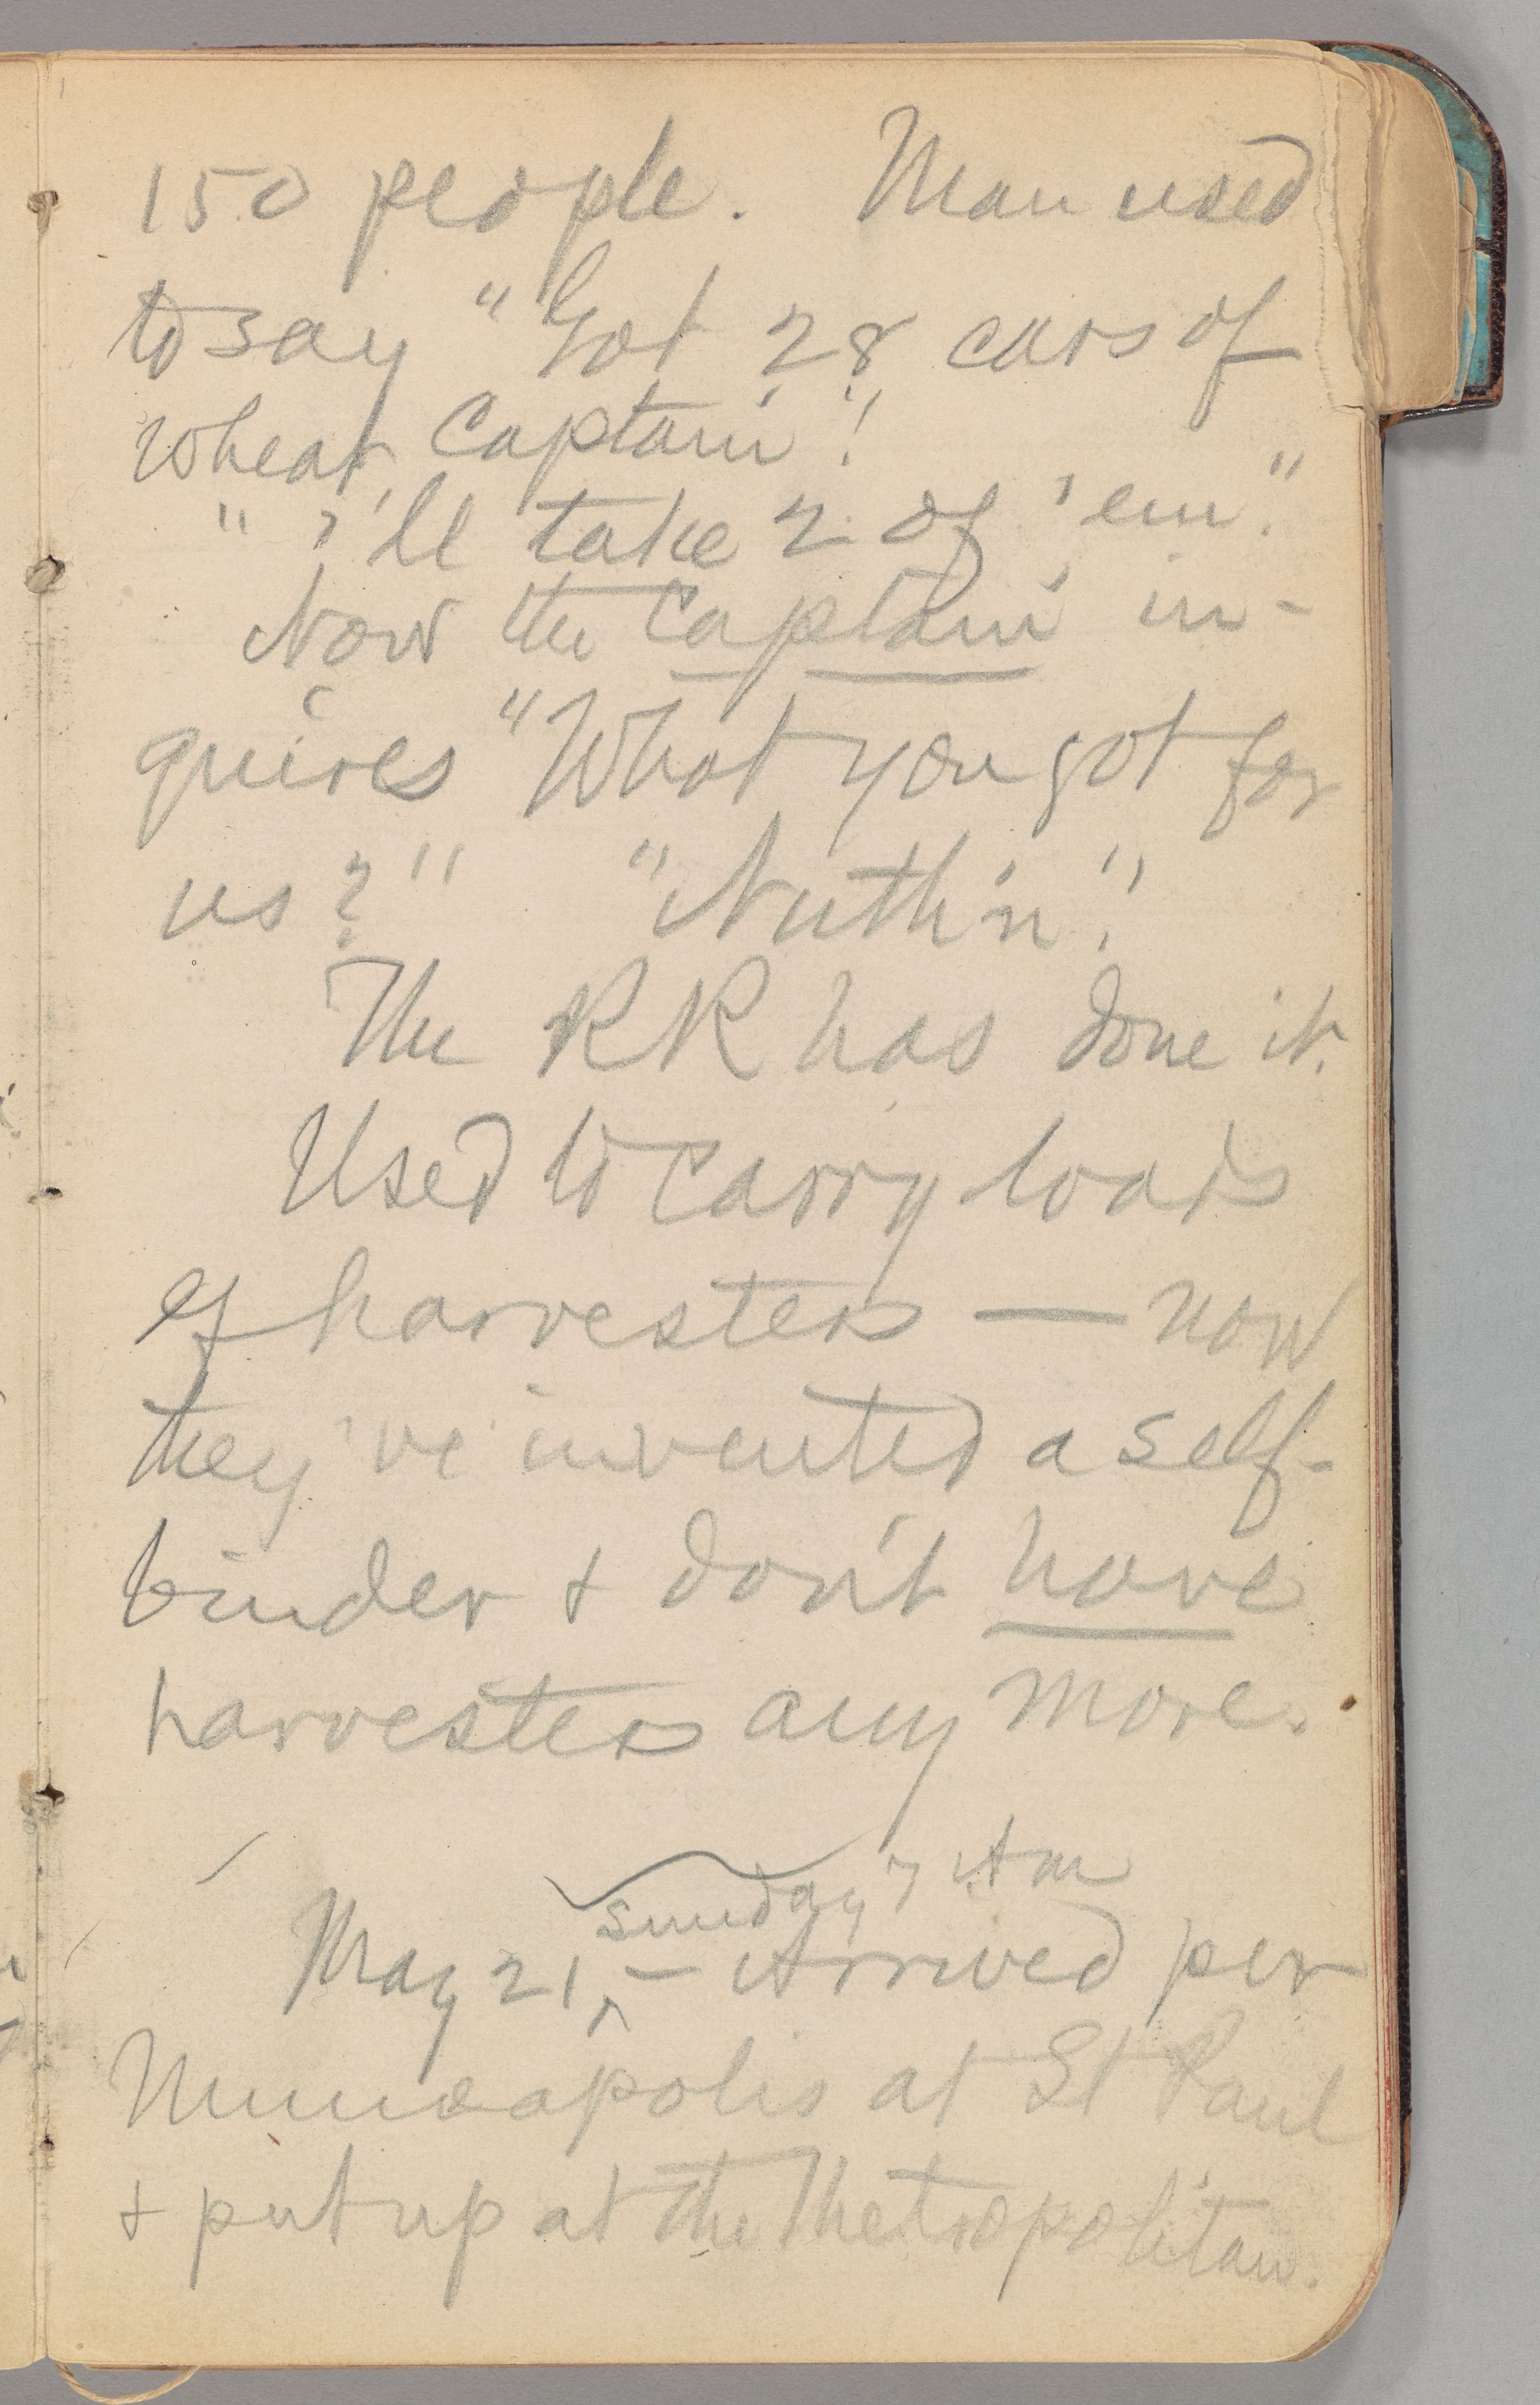 150 people. Man used
to say "Got 28 cars of
wheat, Captain"!
"I'll take 2 of 'em."
Now the captain in-
quires "What you got for
us?" "Nuth'n."
The RR has done it.
Used to carry loads
of harvesters — now
they've invented a self-
binder & don't have
harvesters any more.
Sunday 7 AM
May 21, — Arrived per
Minneapolis at St Paul
& put up at the Metropolitan.